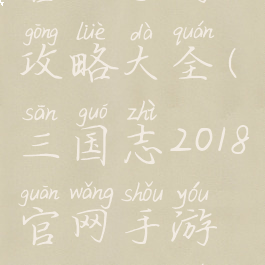 gōng lüè dà quán
攻略大全(
sān guó zhì
三国志2018
guān wǎng shǒu yóu
官网手游